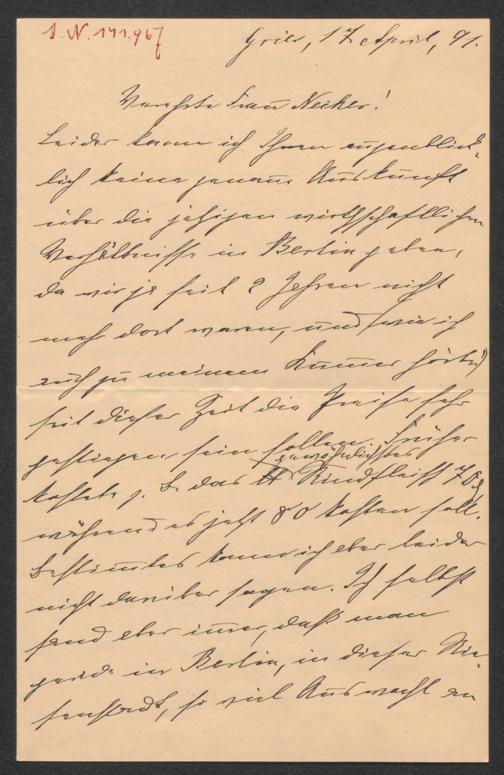 I. N. 141.967
Gries, 17 April, 91.
Verehrte Frau Necker!
Leider kann ich Ihnen augenblick-
lich keine genaue Auskunft
über die jetzigen wirthschaftlichen
Verhältnisse in Berlin geben,
da wir ja seit 2 Jahren nicht
mehr dort waren, und (wie ich
auch zu meinem Kummer hörte)
seit dieser Zeit die Preise sehr
gestiegen sein sollen. Früher
gewöhnlichstes
kostete z. B. das ℔ Rindfleisch 70 ₰
während es jetzt 80 kosten soll.
Bestimmtes kann ich aber leider
nicht darüber sagen. Ich selbst
fand aber immer, daß man
gerade in Berlin, in dieser Rie-
senstadt, so viel Auswahl an